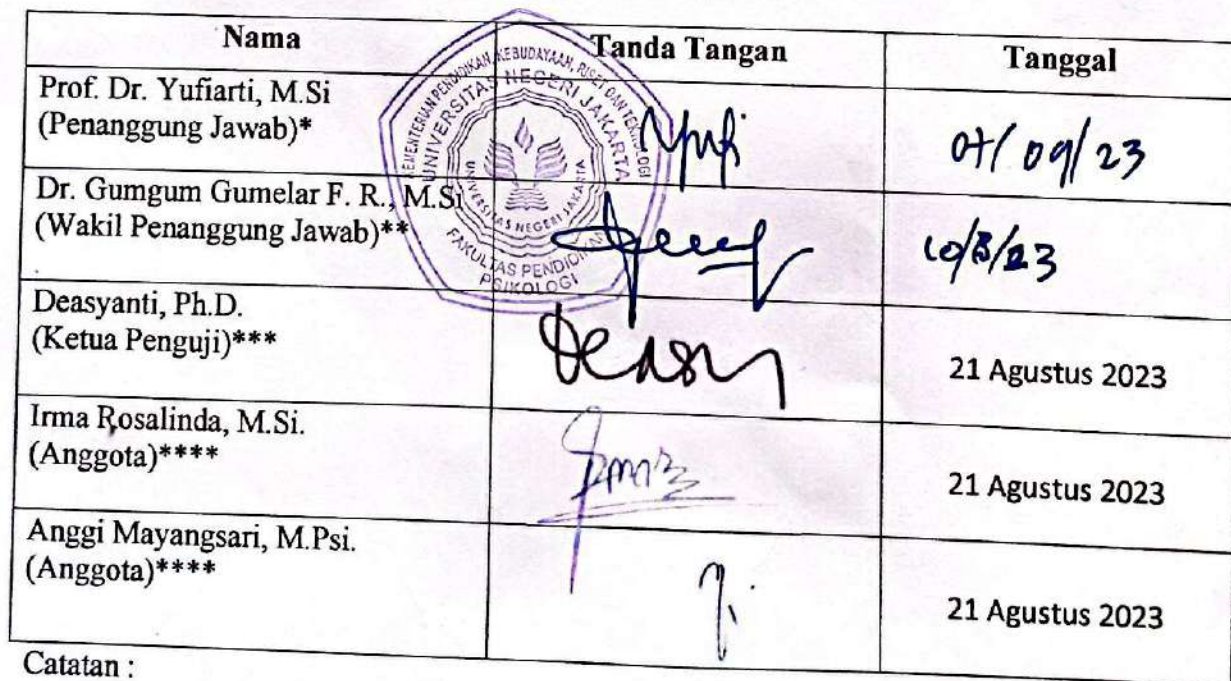 Nama
Tanda Tangan
Tanggal
Prof. Dr. Yufiarti, M.Si
(Penanggung Jawab)*
07/09/23
Dr. Gumgum Gumelar F. R., M.Si
(Wakil Penanggung Jawab)**
Deasyanti, Ph.D.
(Ketua Penguji)***
21 Agustus 2023
Irma Rosalinda, M.Si.
(Anggota)****
21 Agustus 2023
Anggi Mayangsari, M.Psi.
(Anggota)****
21 Agustus 2023
Catatan :
KEMENTERIAN PENDIDIKAN, KEBUDAYAAN, RISET DAN TEKNOLOGI
UNIVERSITAS NEGERI JAKARTA
UNIVERSITAS NEGERI JAKARTA
FAKULTAS PENDIDIKAN
PSIKOLOGI